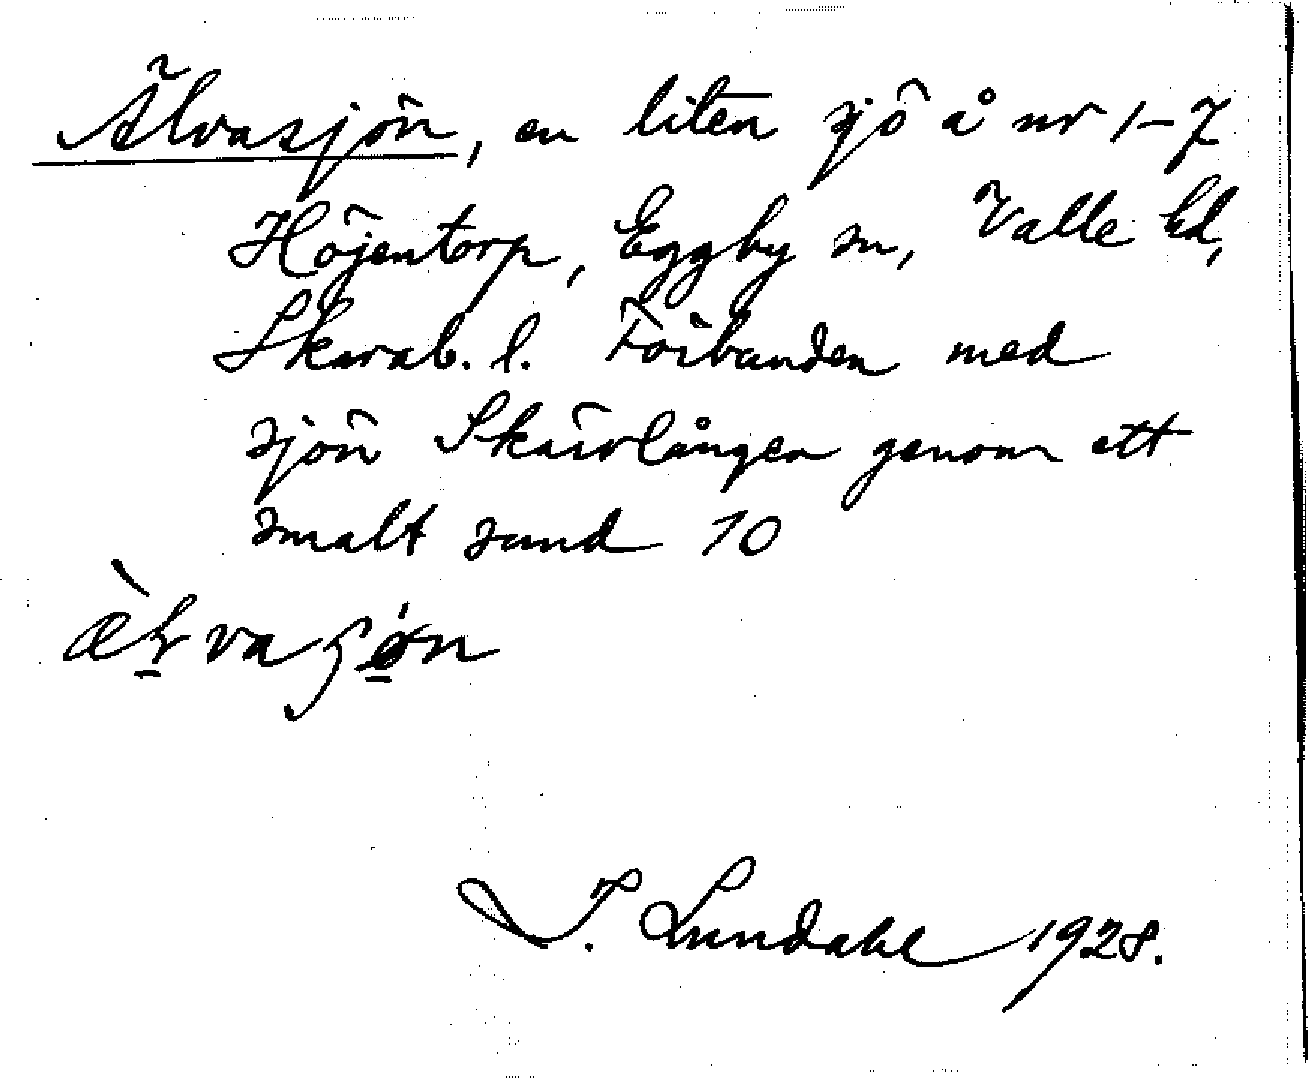 Älvasjön, en liten sjö å nr 1–7
Höjentorp, Eggby sn, Valle hd,
Skarab. l. Förbunden med
sjön Skärvlången genom ett
smalt sund 10
I. Lundahl 1928.